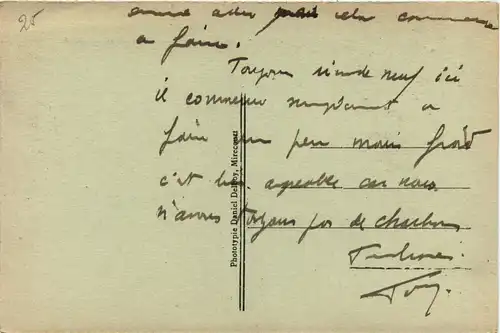 25
aller mais cela commence
a faire.
Toujours rien de neuf ici
il commence maintenant a
faire un peu moins froid
c'est bien agreable car nous
n'avons toujours pas de charbon
Phototypie Daniel Delboy, Mirecourt